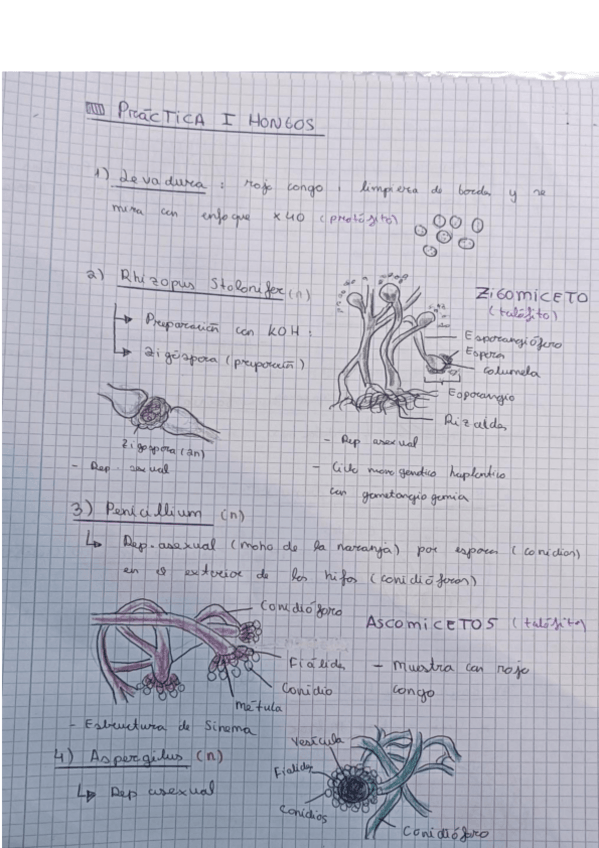 PRÁCTICA I HONGOS
1) Levadura : rojo congo, limpieza de bordes y se
mira con enfoque x40 (protófito)
2) Rhizopus Stolonifer (n)
Preparación con KOH :
Zigóspora (preparación)
ZIGOMICETO
(talófito)
Esporangióforo
Espora
columela
Esporangio
Rizoides
Zigospora (2n)
- Rep. sexual
- Rep asexual
- Ciclo monogenético haplontico
con gametangiogamia
3) Penicillium (n)
Rep. asexual (moho de la naranja) por esporas (conidios)
en el exterior de las hifas (conidióforos)
Conidióforo
Fiálida
Conidio
métula
ASCOMICETOS (talófito)
- Muestra con rojo
congo
- Estructura de Sinema
4) Aspergilus (n)
Rep asexual
Vesícula
Fialides
Conidios
Conidióforo